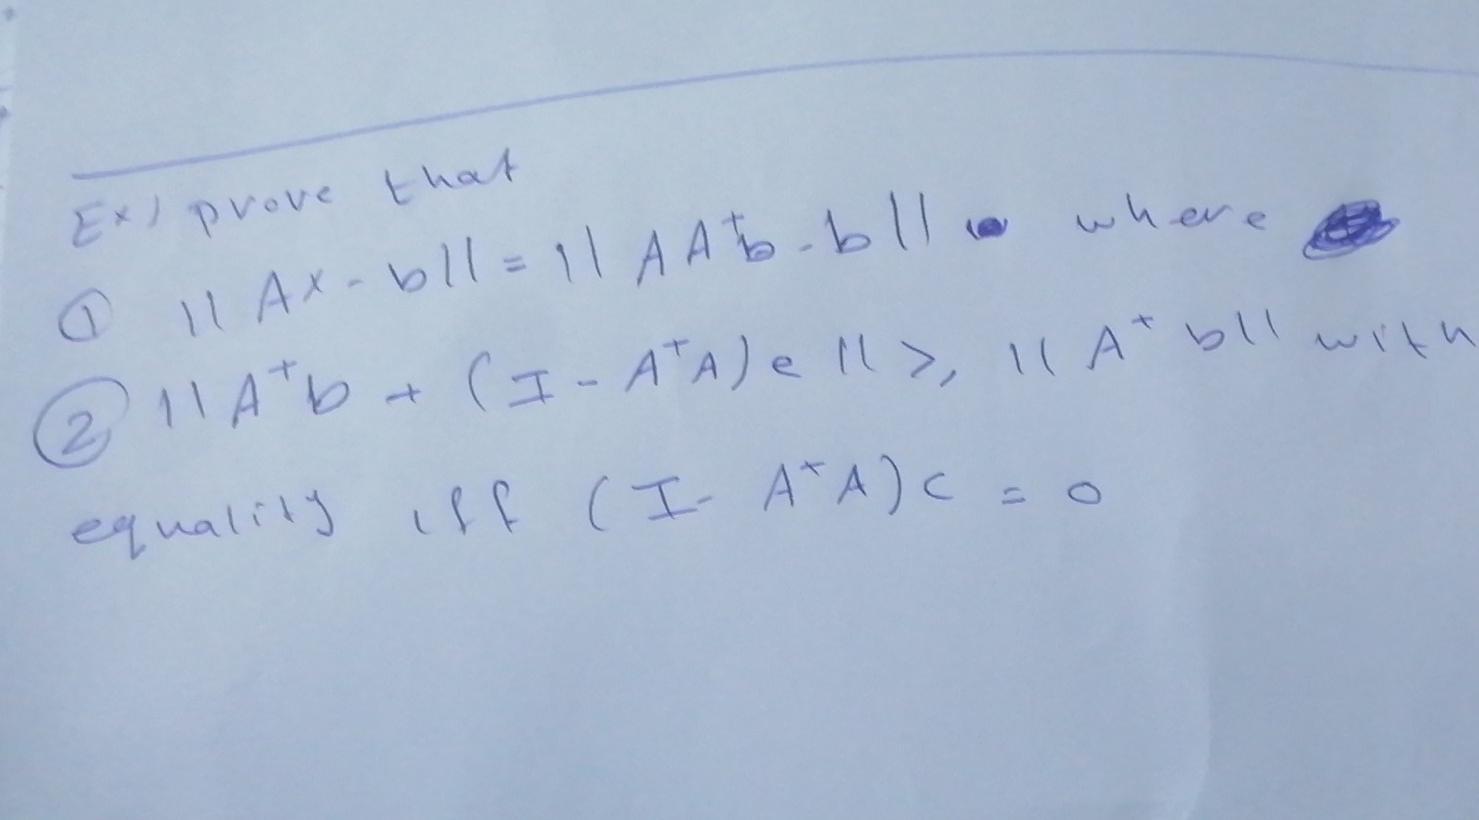 Ex) prove that
① ||Ax - b|| = ||AA⁺b - b|| where
② ||A⁺b + (I - A⁺A)c|| ≥ ||A⁺b|| with
equality iff (I - A⁺A)c = 0